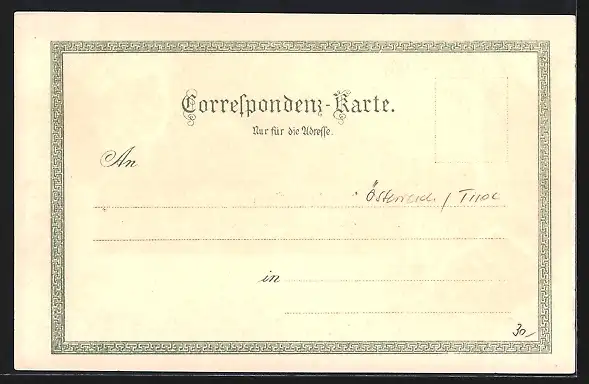 Correſpondenz-Karte.
Nur für die Adreſſe.
An
Österreich / Tirol
in
30,-